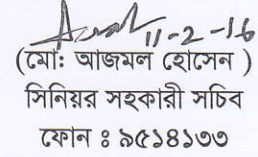 11-2-16
(মো: আজমল হোসেন )
সিনিয়র সহকারী সচিব
ফোন ঃ ৯৫১৪১৩৩